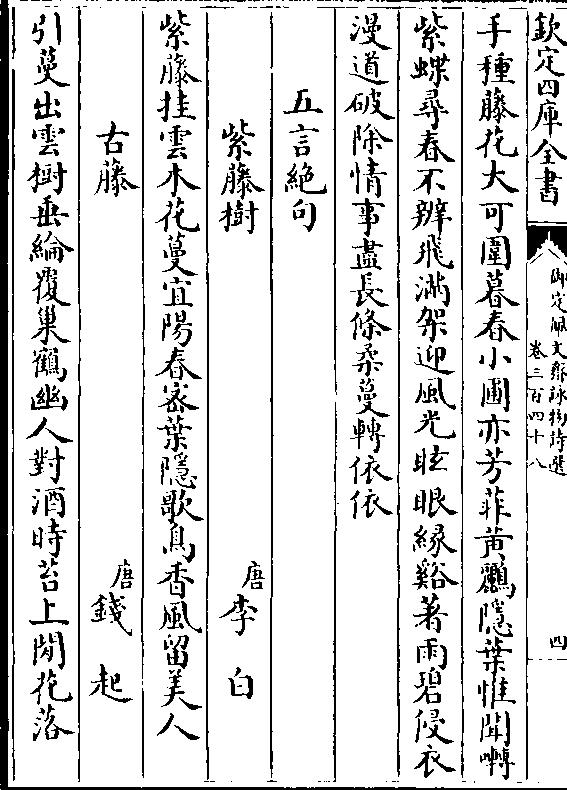 欽定四庫全書
御定佩文齋詠物詩選
卷三百四十八
四
手種藤花大可圍暮春小圃亦芳菲黃鸝隱葉惟聞囀
紫蝶尋春不辨飛滿架迎風光眩眼緣谿著雨碧侵衣
漫道破除情事盡長條柔蔓轉依依
五言絕句
紫藤樹
唐李白
紫藤挂雲木花蔓宜陽春密葉隱歌鳥香風留美人
古藤
唐錢起
引蔓出雲樹垂綸覆巢鶴幽人對酒時苔上閒花落